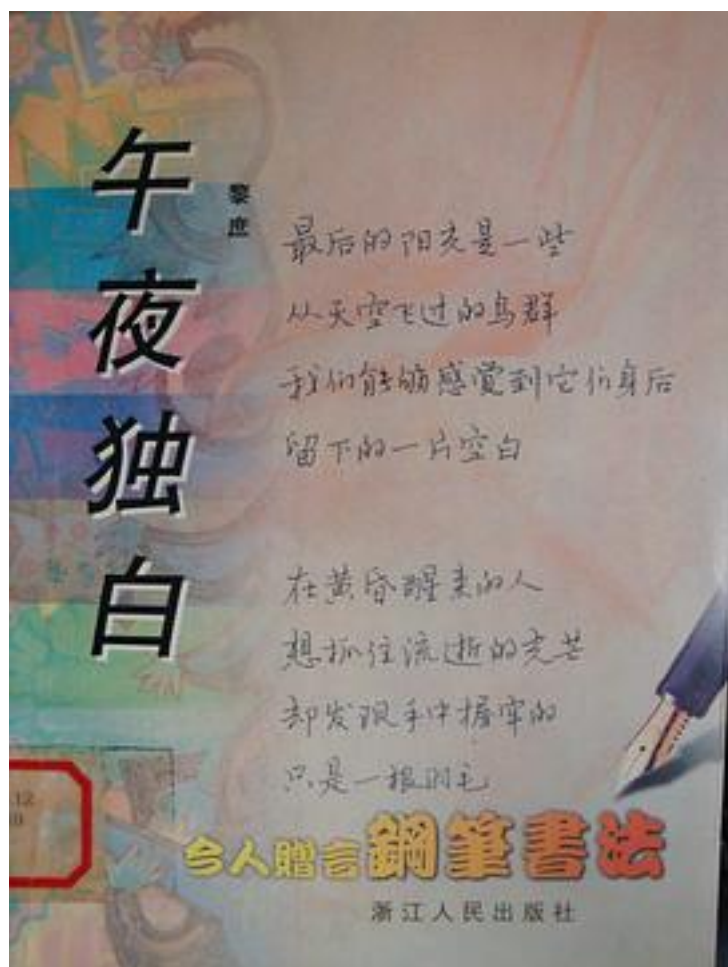 午夜独白
黎庶
最后的阳光是一些
从天空飞过的鸟群
我们能够感觉到它们身后
留下的一片空白
在黄昏醒来的人
想抓住流逝的光芒
却发现手中握牢的
只是一根羽毛
.12
今人贈言鋼筆書法
浙江人民出版社